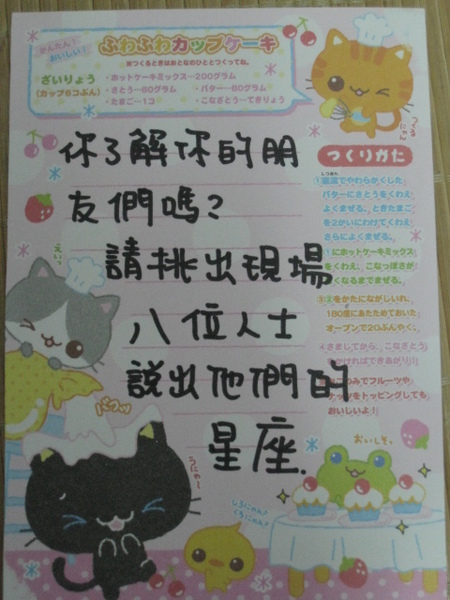 かんたん！
おいしい！
ふわふわカップケーキ
※つくるときはおとなのひととつくってね。
ざいりょう
(カップ6コぶん)
・ホットケーキミックス…200グラム
・さとう…60グラム ・バター…60グラム
・たまご…1コ ・こなざとう…てきりょう
你了解你的朋
友們嗎?
請挑出現場
八位人士
說出他們的
星座.
つくりかた
①室温でやわらかくした
バターにさとうをくわえ
よくまぜる。ときたまご
を2かいにわけてくわえ
さらによくまぜる。
①にホットケーキミックス
をくわえ、こなっぽさが
なくなるまでまぜる。
③②をかたにながしいれ、
180度にあたためておいた
オーブンで20ぷんやく。
さましてから、こなざとう
かければできあがり！
つみでフルーツや
ナッツをトッピングしても
おいしいよ！
えいっ
パフッ
うにゃ〜
おいしそ。
しろにゃん♪
くろにゃん♪